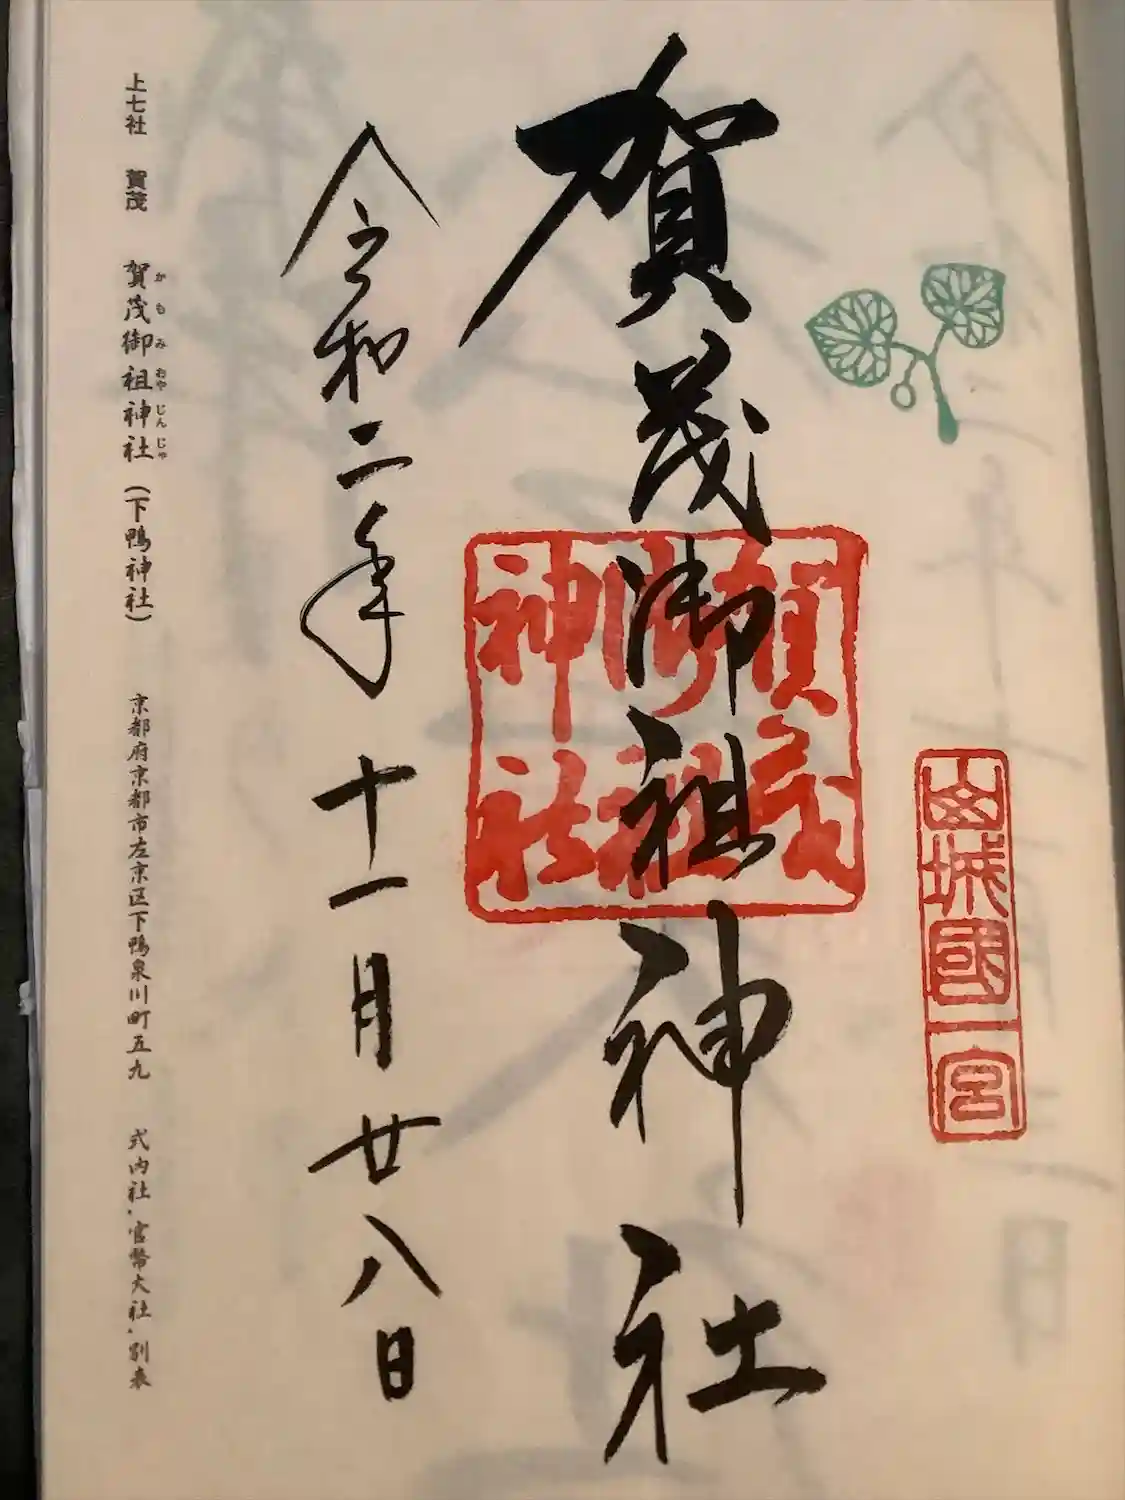 山城國一宮
賀茂御祖神社
賀茂御祖神社
令和二年十一月廿八日
上七社 賀茂 賀茂御祖神社(下鴨神社) 京都府京都市左京区下鴨泉川町五九 式内社、官幣大社、別表
かもみおやじんじゃ